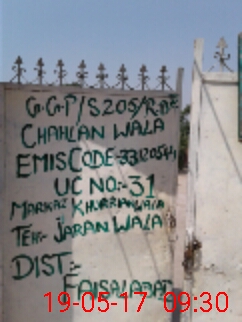 G.G.P/S 205/R.B
CHAHLAN WALA
EMIS CODE-33120544
UC NO:-31
MARKAZ KHURRIANWALA
TEH:- JARANWALA
DIST:-
FAISALABAD
19-05-17 09:30